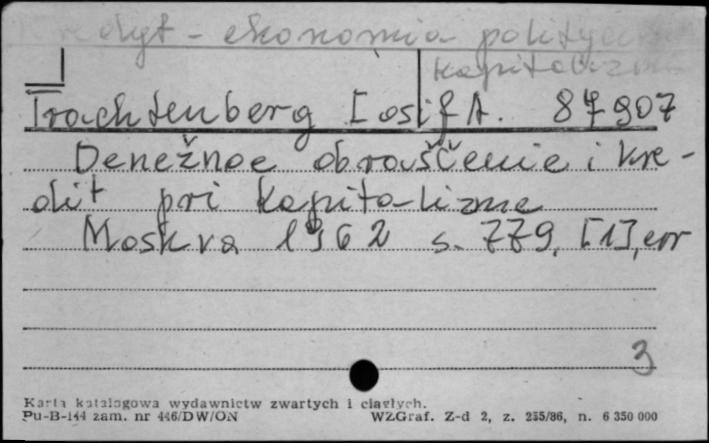 Kredyt - ekonomia polityczna
kapitalizmu
Trachtenberg Iosif A. 87907
Denežnoe obraščenie i kre-
dit pri kapitalizme
Moskva 1962 s. 779, [1], err
3
Karta katalogowa wydawnictw zwartych i ciągłych.
Pu-B-144 zam. nr 446/DW/ON WZGraf. Z-d 2, z. 255/86, n. 6 350 000